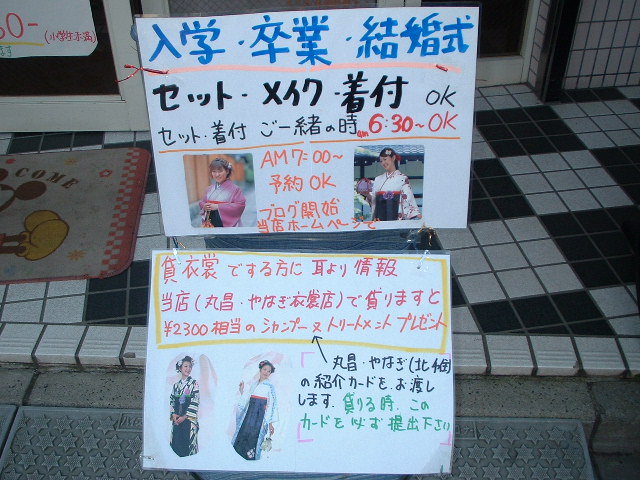 50-
(小学生未満)
ます
COME
入学・卒業・結婚式
セット・メイク・着付 OK
セット・着付 ご一緒の時 am6:30~OK
AM7:00~
予約OK
ブログ開始
当店ホームページで
貸衣裳でする方に 耳より情報
当店(丸昌・やなぎ衣裳店)で貸りますと
¥2300相当のシャンプー又トリートメントプレゼント
丸昌・やなぎ(北 )
の紹介カードを、お渡し
します。貸りる時、この
カードを必ず提出下さい